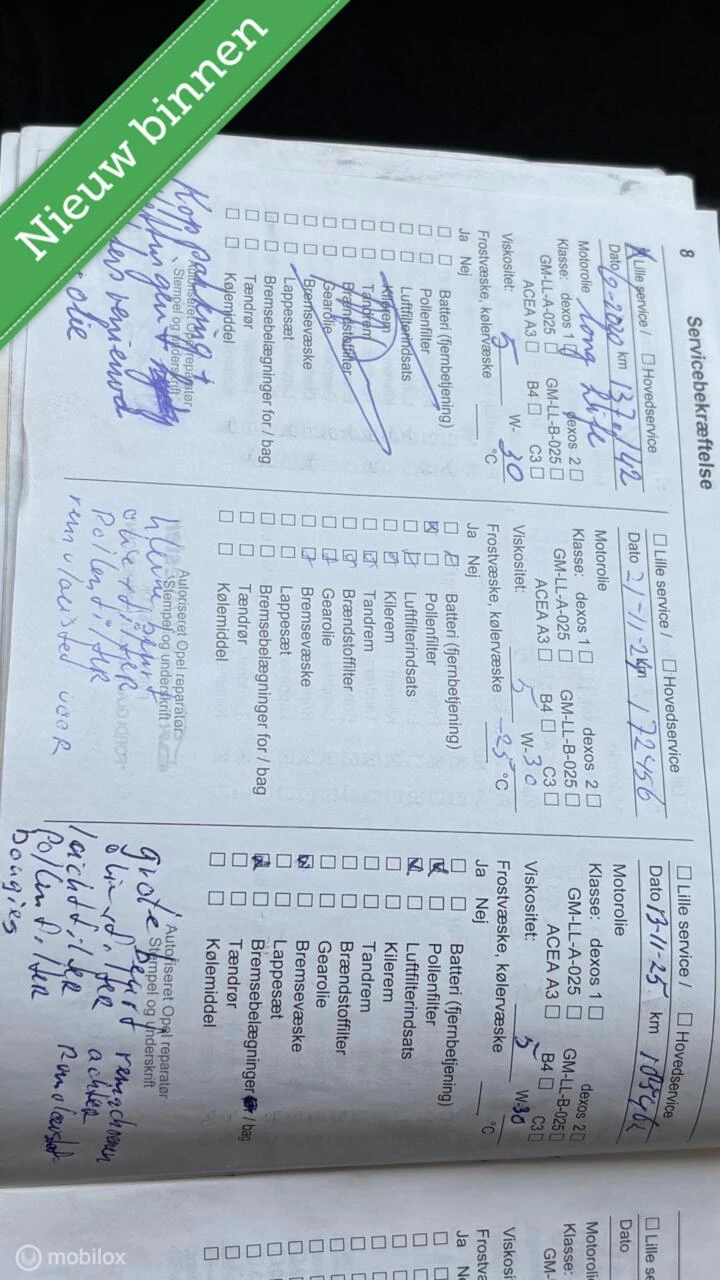 Nieuw binnen
8
Servicebekræftelse
Lille service / Hovedservice
km 137.142
Motorolie long life
Klasse: dexos 1 dexos 2
GM-LL-A-025 GM-LL-B-025
ACEA A3 B4 C3
Viskositet: 5 W- 30
Frostvæske, kølervæske °C
Ja Nej
Batteri (fjernbetjening)
Pollenfilter
Luftfilterindsats
Kilerem
Tandrem
Brændstoffilter
Gearolie
Bremsevæske
Lappesæt
Bremsebelægninger for / bag
Tændrør
Kølemiddel
Autoriseret Opel reparatør
Stempel og underskrift
Koppakking +
olie
Lille service / Hovedservice
Dato 21-11-24 km 172456
Motorolie
Klasse: dexos 1 dexos 2
GM-LL-A-025 GM-LL-B-025
ACEA A3 B4 C3
Viskositet: 5 W- 30
Frostvæske, kølervæske -25 °C
Ja Nej
Batteri (fjernbetjening)
Pollenfilter
Luftfilterindsats
Kilerem
Tandrem
Brændstoffilter
Gearolie
Bremsevæske
Lappesæt
Bremsebelægninger for / bag
Tændrør
Kølemiddel
Autoriseret Opel reparatør
Stempel og underskrift
kleine beurt
Pollenfilter
Lille service / Hovedservice
Dato 13-11-25 km
Motorolie
Klasse: dexos 1 dexos 2
GM-LL-A-025 GM-LL-B-025
ACEA A3 B4 C3
Viskositet: 5 W- 30
Frostvæske, kølervæske °C
Ja Nej
Batteri (fjernbetjening)
Pollenfilter
Luftfilterindsats
Kilerem
Tandrem
Brændstoffilter
Gearolie
Bremsevæske
Lappesæt
Bremsebelægninger / bag
Tændrør
Kølemiddel
Autoriseret Opel reparatør
Stempel og underskrift
grote beurt remschijven
achter
Pollenfilter
bougies
Lille se
Dato
Motorolie
Klasse:
GM-
Viskosit
Frostvæ
Ja Ne
mobilox